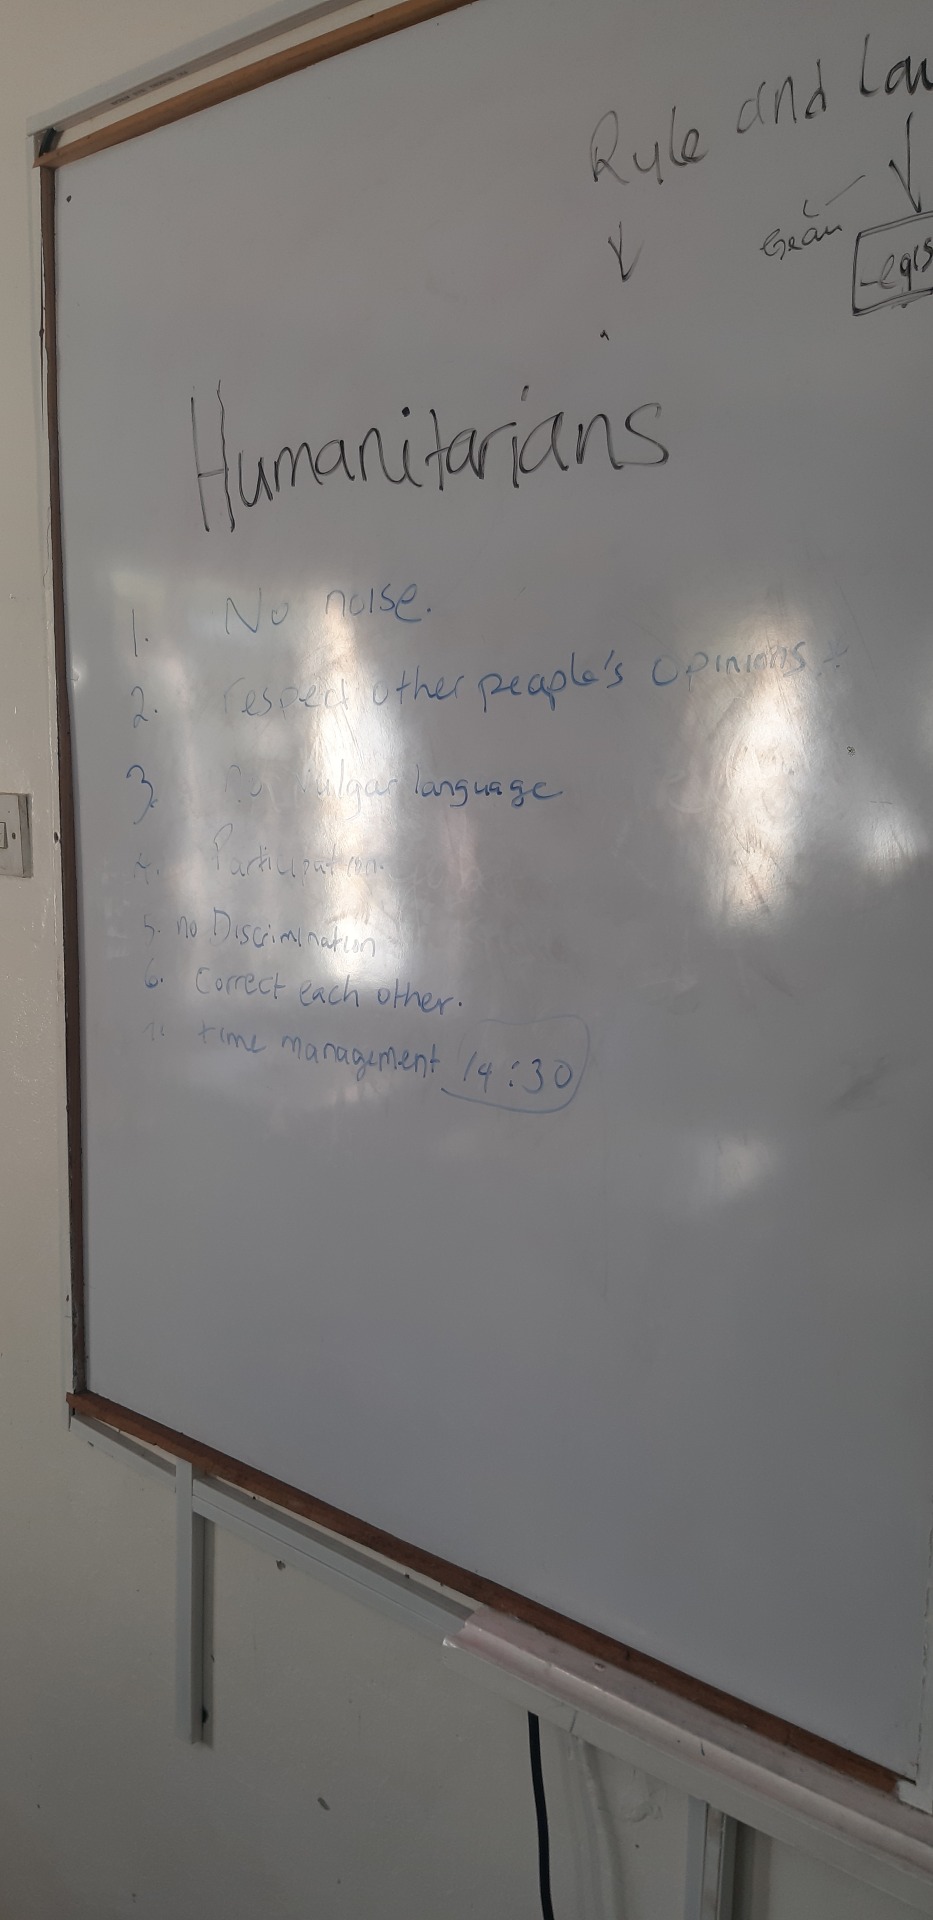 Rule and Law
Humanitarians
1. No noise.
2. respect other people's opinions *
3. No vulgar language
4. Participation.
5. no Discrimination
6. Correct each other.
7. time management 14:30